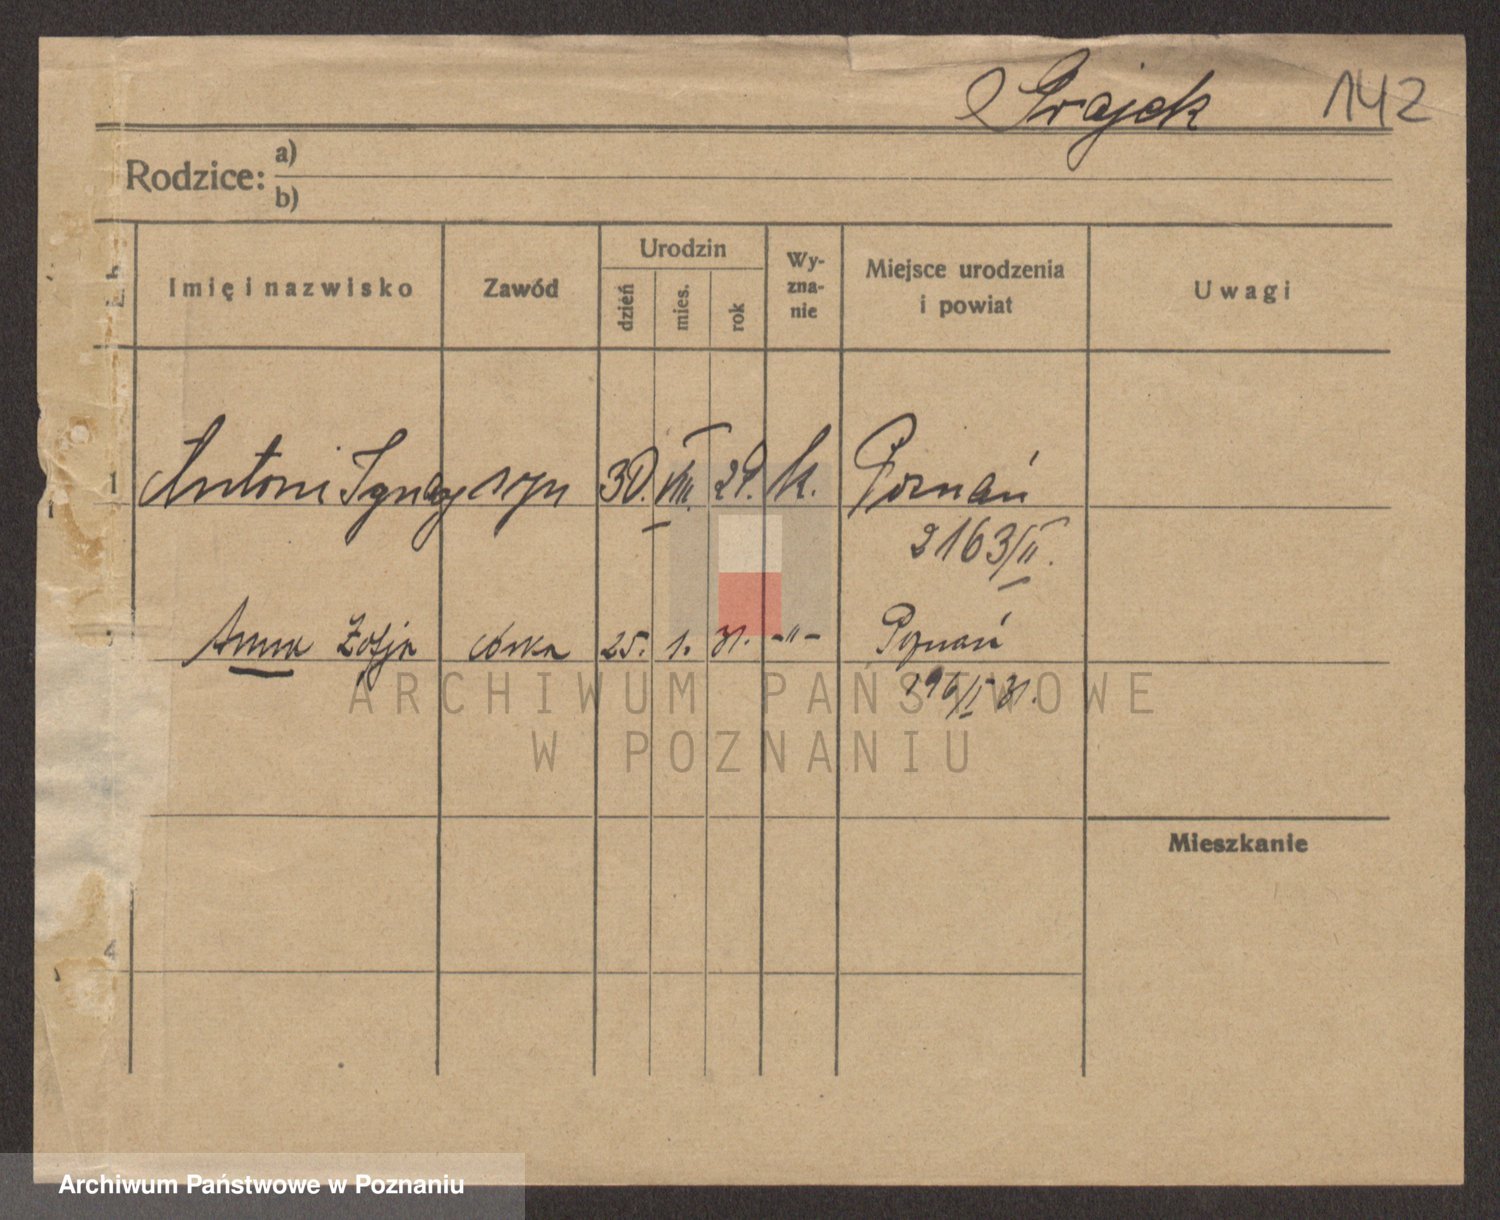 142
Rodzice: a)
b)
Imię i nazwisko Zawód Urodzin dzień mies. rok Wy-zna-nie Miejsce urodzenia i powiat Uwagi
1 Antoni Ignacy syn 30. VIII. 29. k. Poznań
2163/II.
Anna Zofja córka 25. 1. 31. -"- Poznań
196/II 31.
ARCHIWUM PAŃSTWOWE
W POZNANIU
Mieszkanie
4
Archiwum Państwowe w Poznaniu